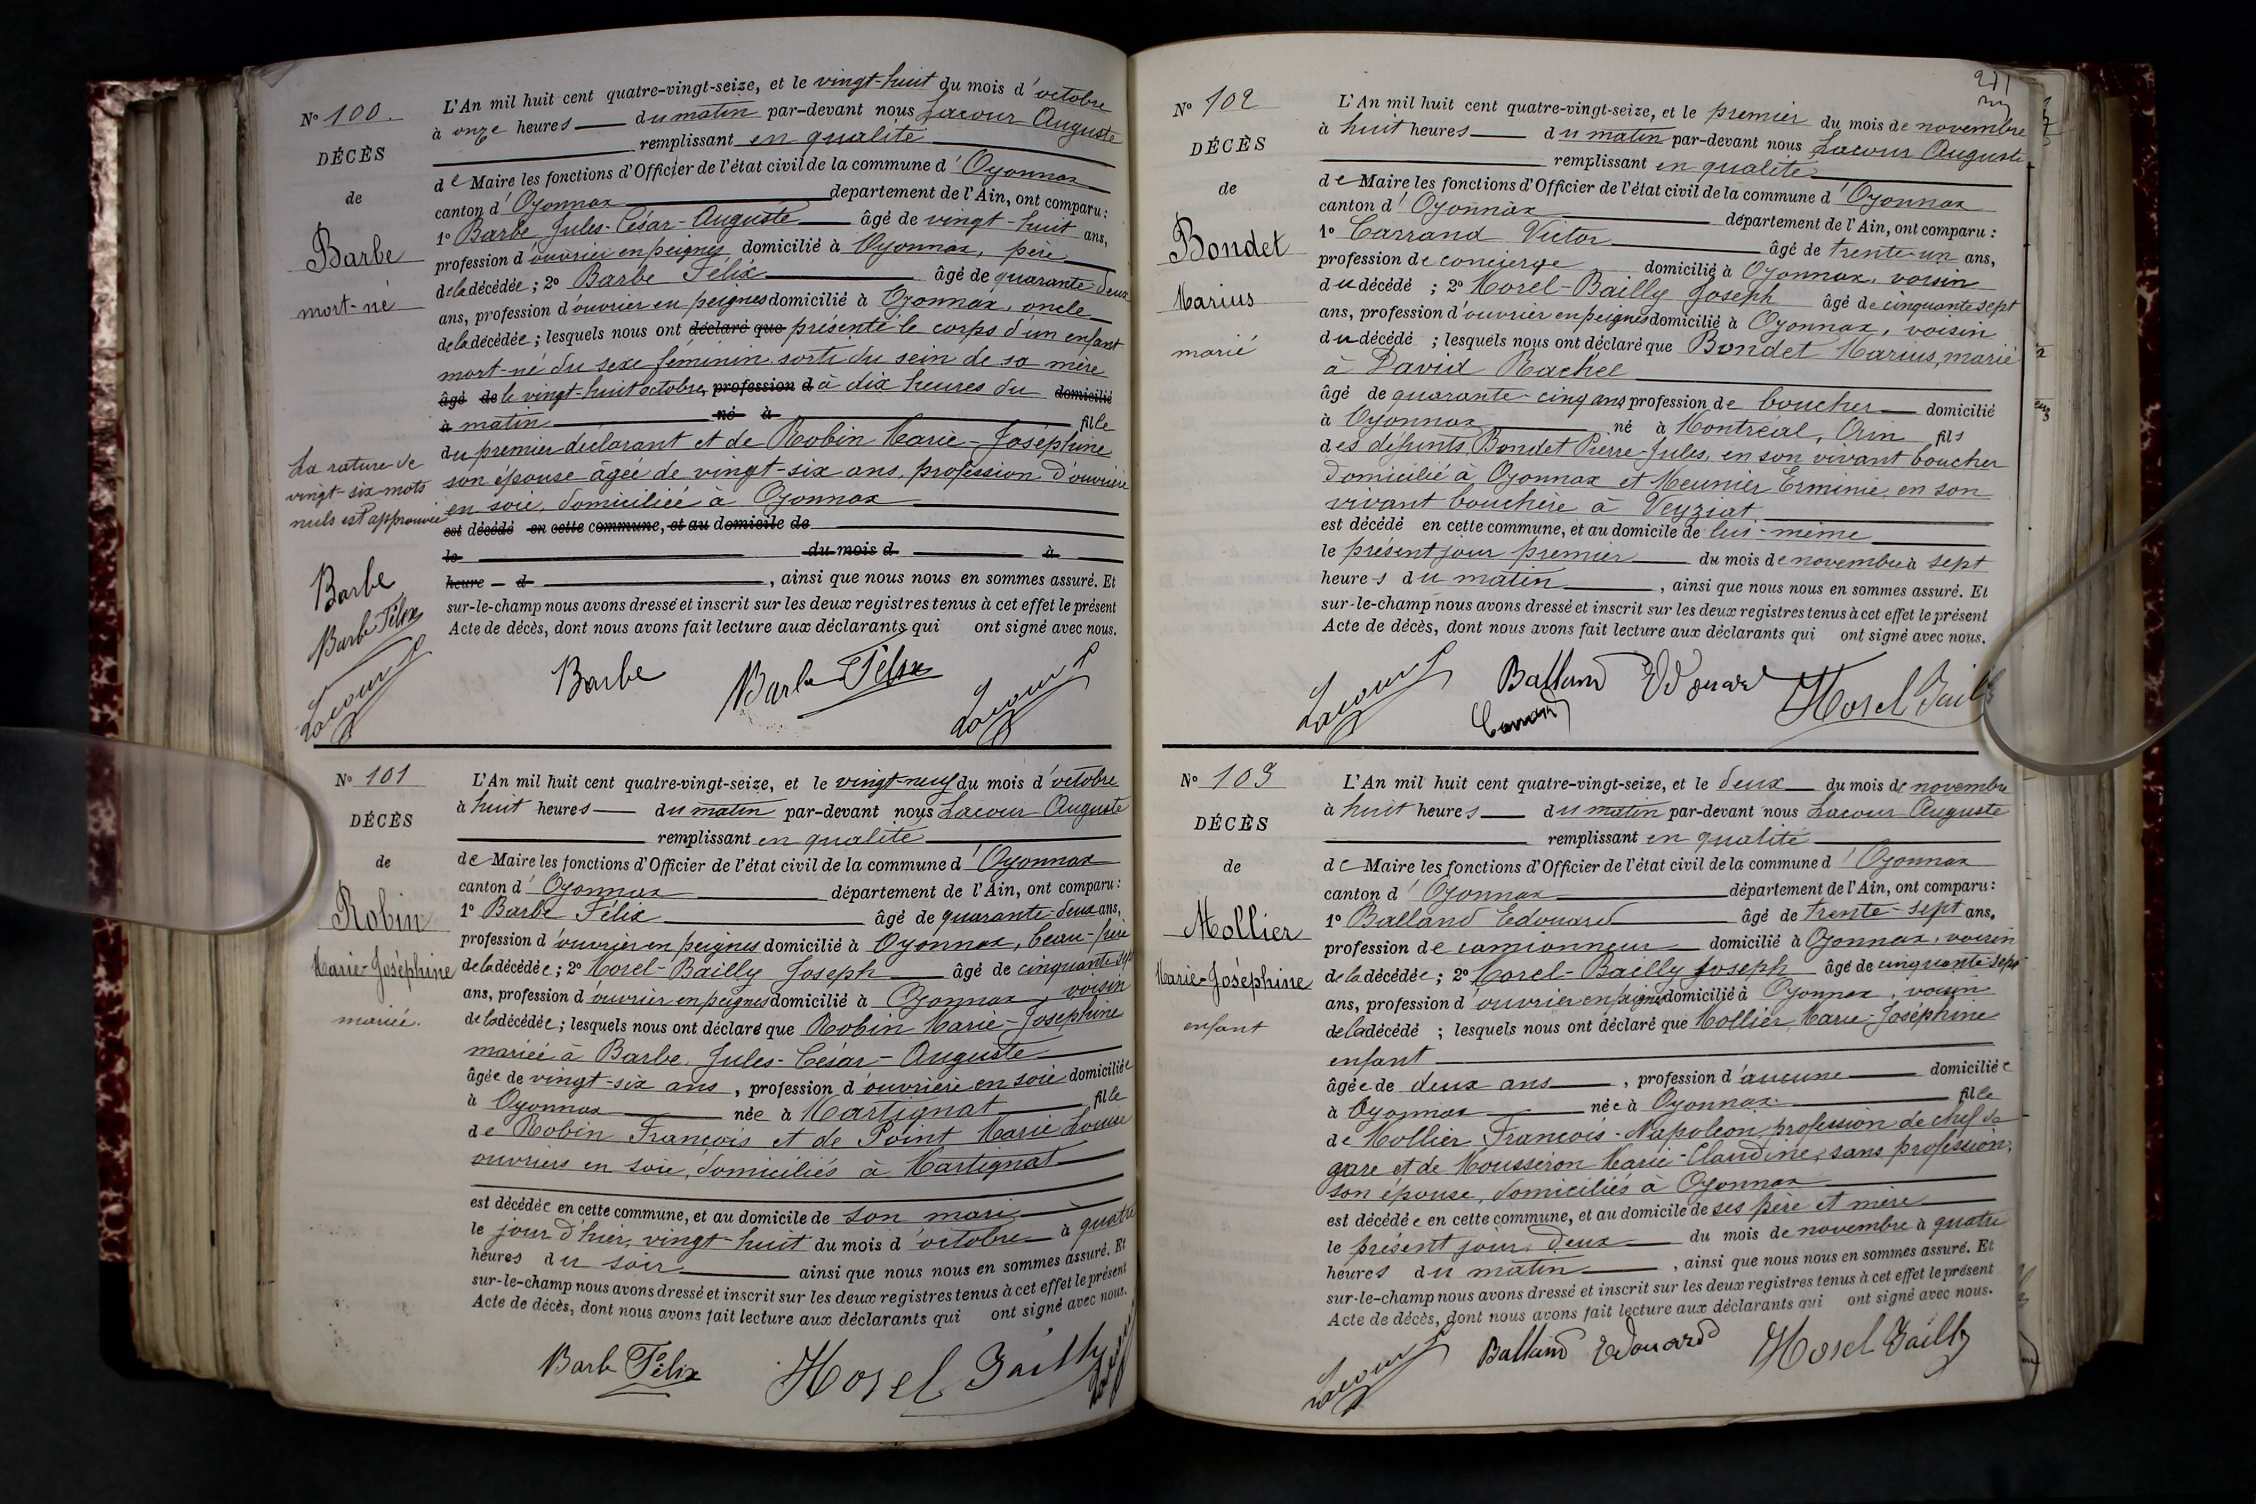 N° 100.
DÉCÈS
de
Barbe
mort-né
La rature de
vingt-six mots
nuls est approuvée
Barbe
Barbe Félix
Lacour
L'An mil huit cent quatre-vingt-seize, et le vingt-huit du mois d'octobre
à onze heures du matin par-devant nous Lacour Auguste
remplissant en qualité
de Maire les fonctions d'Officier de l'état civil de la commune d'Oyonnax
canton d'Oyonnax département de l'Ain, ont comparu :
1° Barbe Jules-César-Auguste âgé de vingt-huit ans,
profession d'ouvrier en peignes domicilié à Oyonnax, père
de la décédée ; 2° Barbe Félix âgé de quarante deux
ans, profession d'ouvrier en peignes domicilié à Oyonnax, oncle
de la décédée ; lesquels nous ont déclaré que présenté le corps d'un enfant
mort-né du sexe féminin sorti du sein de sa mère
âgé de le vingt-huit octobre, profession d à dix heures du domicilié
à matin né à fille
du premier déclarant et de Robin Marie-Joséphine
son épouse âgée de vingt-six ans, profession d'ouvrière
en soie, domiciliée à Oyonnax
est décédé en cette commune, et au domicile de
le du mois d à
heure d , ainsi que nous nous en sommes assuré. Et
sur-le-champ nous avons dressé et inscrit sur les deux registres tenus à cet effet le présent
Acte de décès, dont nous avons fait lecture aux déclarants qui ont signé avec nous.
Barbe Barbe Félix Lacour
N° 101
DÉCÈS
de
Robin
Marie-Joséphine
mariée.
L'An mil huit cent quatre-vingt-seize, et le vingt-neuf du mois d'octobre
à huit heures du matin par-devant nous Lacour Auguste
remplissant en qualité
de Maire les fonctions d'Officier de l'état civil de la commune d'Oyonnax
canton d'Oyonnax département de l'Ain, ont comparu :
1° Barbe Félix âgé de quarante-deux ans,
profession d'ouvrier en peignes domicilié à Oyonnax, beau-frère
de la décédée ; 2° Morel-Bailly Joseph âgé de cinquante-sept
ans, profession d'ouvrier en peignes domicilié à Oyonnax, voisin
de la décédée ; lesquels nous ont déclaré que Robin Marie-Joséphine
mariée à Barbe Jules-César-Auguste
âgée de vingt-six ans, profession d'ouvrière en soie domiciliée
à Oyonnax née à Martignat fille
de Robin François et de Point Marie Louise
ouvriers en soie, domiciliés à Martignat
est décédée en cette commune, et au domicile de son mari
le jour d'hier, vingt-huit du mois d'octobre à quatre
heures du soir ainsi que nous nous en sommes assuré. Et
sur-le-champ nous avons dressé et inscrit sur les deux registres tenus à cet effet le présent
Acte de décès, dont nous avons fait lecture aux déclarants qui ont signé avec nous.
Barbe Félix Morel Bailly
271
N° 102
DÉCÈS
de
Bondet
Marius
marié
L'An mil huit cent quatre-vingt-seize, et le premier du mois de novembre
à huit heures du matin par-devant nous Lacour Auguste
remplissant en qualité
de Maire les fonctions d'Officier de l'état civil de la commune d'Oyonnax
canton d'Oyonnax département de l'Ain, ont comparu :
1° Carrand Victor âgé de trente-un ans,
profession de concierge domicilié à Oyonnax, voisin
du décédé ; 2° Morel-Bailly Joseph âgé de cinquante sept
ans, profession d'ouvrier en peignes domicilié à Oyonnax, voisin
du décédé ; lesquels nous ont déclaré que Bondet Marius, marié
à David Rachel
âgé de quarante-cinq ans, profession de boucher domicilié
à Oyonnax né à Montréal, Ain fils
des défunts Bondet Pierre-Jules, en son vivant boucher
domicilié à Oyonnax et Meunier Erminie, en son
vivant bouchère à Veyziat
est décédé en cette commune, et au domicile de lui-même
le présent jour premier du mois de novembre à sept
heures du matin , ainsi que nous nous en sommes assuré. Et
sur-le-champ nous avons dressé et inscrit sur les deux registres tenus à cet effet le présent
Acte de décès, dont nous avons fait lecture aux déclarants qui ont signé avec nous.
Lacour Balland Edouard Morel Bailly
Carrand
N° 103
DÉCÈS
de
Mollier
Marie-Joséphine
enfant
L'An mil huit cent quatre-vingt-seize, et le deux du mois de novembre
à huit heures du matin par-devant nous Lacour Auguste
remplissant en qualité
de Maire les fonctions d'Officier de l'état civil de la commune d'Oyonnax
canton d'Oyonnax département de l'Ain, ont comparu :
1° Balland Edouard âgé de trente-sept ans,
profession de camionneur domicilié à Oyonnax, voisin
de la décédée ; 2° Morel-Bailly Joseph âgé de cinquante-sept
ans, profession d'ouvrier en peignes domicilié à Oyonnax, voisin
de la décédé ; lesquels nous ont déclaré que Mollier Marie-Joséphine
enfant
âgée de deux ans, profession d'aucune domiciliée
à Oyonnax née à Oyonnax fille
de Mollier François-Napoléon, profession de chef de
gare et de Mousseron Marie-Claudine, sans profession,
son épouse, domiciliés à Oyonnax
est décédée en cette commune, et au domicile de ses père et mère
le présent jour, deux du mois de novembre à quatre
heures du matin , ainsi que nous nous en sommes assuré. Et
sur-le-champ nous avons dressé et inscrit sur les deux registres tenus à cet effet le présent
Acte de décès, dont nous avons fait lecture aux déclarants qui ont signé avec nous.
Lacour Balland Edouard Morel Bailly